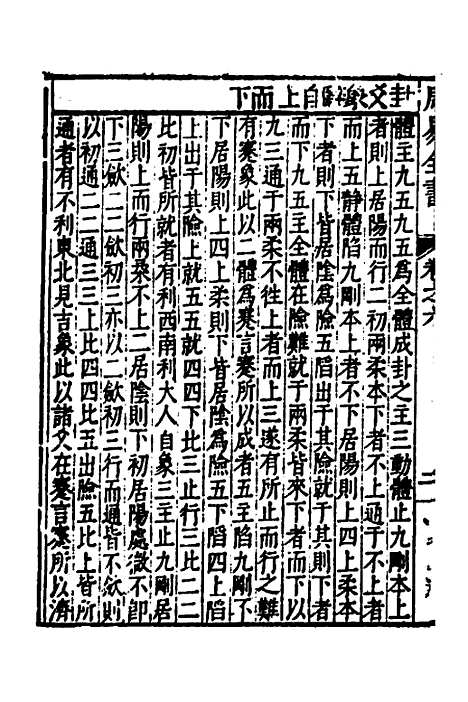 卦爻自上而下
周易全書
卷之六
二
體主九五九五為全體成卦之主三動體止九剛本上
者則上居陽而行二初兩柔本下者不上通于不上者
而上五靜體陷九剛本上者不下居陽則上四上柔本
下者則下皆居陰為險五陷出于其險就于其則下者
而下九五主全體在險難就于兩柔皆來下者而下以
九三通于兩柔不徃上者而上三遂有所止而行之難
有蹇象此以二體為蹇言蹇所以成者五主陷九剛不
下居陽則上四上柔則下皆居陰為險五下陷四上陷
上出于其險上就五五就四四下比三止行三比二二
比初皆所就者有利西南利大人自象三主止九剛居
陽則上而行兩柔不上二居陰則下初居陽處微不卽
下三歛二二歛初三亦以二歛初三行而通皆不歛則
以初通二二通三三上比四四比五出險五比上皆所
通者有不利東北見吉象此以諸爻在蹇言蹇所以濟